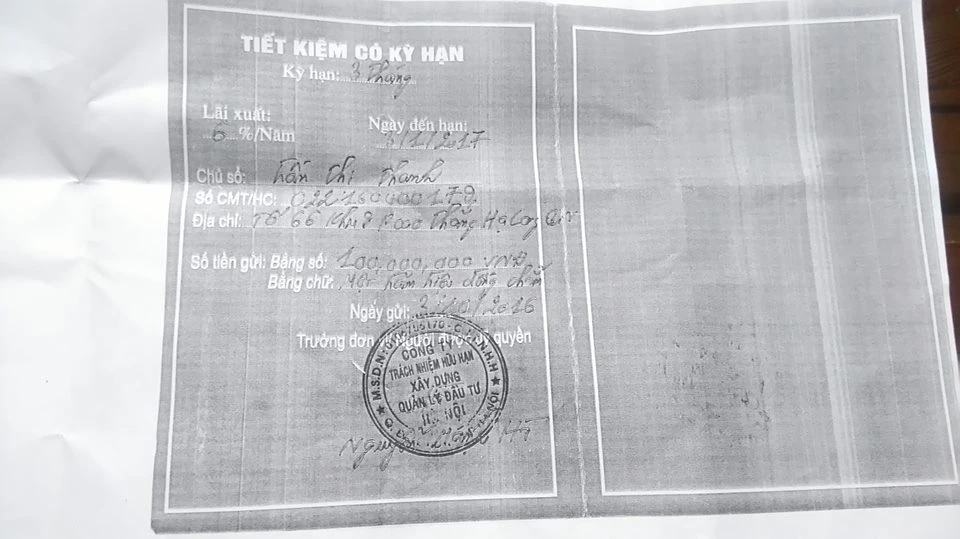 TIẾT KIỆM CÓ KỲ HẠN
Kỳ hạn: 3 Tháng
Lãi xuất:
6 %/Năm
Ngày đến hạn: /1/2017
Chủ sổ: Trần Thị Thanh
Số CMT/HC:
Địa chỉ: Tổ 66 Khu 8 P Cao Thắng Hạ Long QN
Số tiền gửi: Bằng số: 100,000,000 VNĐ
Bằng chữ: Một trăm triệu đồng chẵn
Ngấy gửi: 3/10/2016
Trưởng đơn vị Người được ủy quyền
M.S.D.N: C.T.T.N.H.H
CÔNG TY
TRÁCH NHIỆM HỮU HẠN
XÂY DỰNG
QUẢN LÝ ĐẦU TƯ
HÀ NỘI